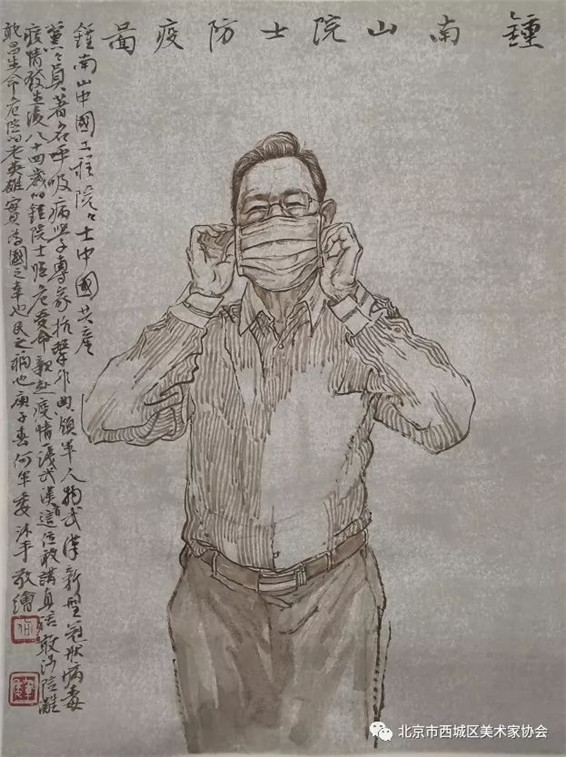 鍾南山院士防疫啚
鍾南山中國工程院々士中國共產
黨々員著名呼吸病學專家抗擊非典領軍人物武漢新型冠狀病毒
疫情發生後八十四歲的鍾院士臨危受命親赴疫情一綫武漢這位敢講真話敢涉險難
敢冒生命危險的老英雄實為國之幸也民之福也庚子春何軍委沐手敬繪
北京市西城区美术家协会